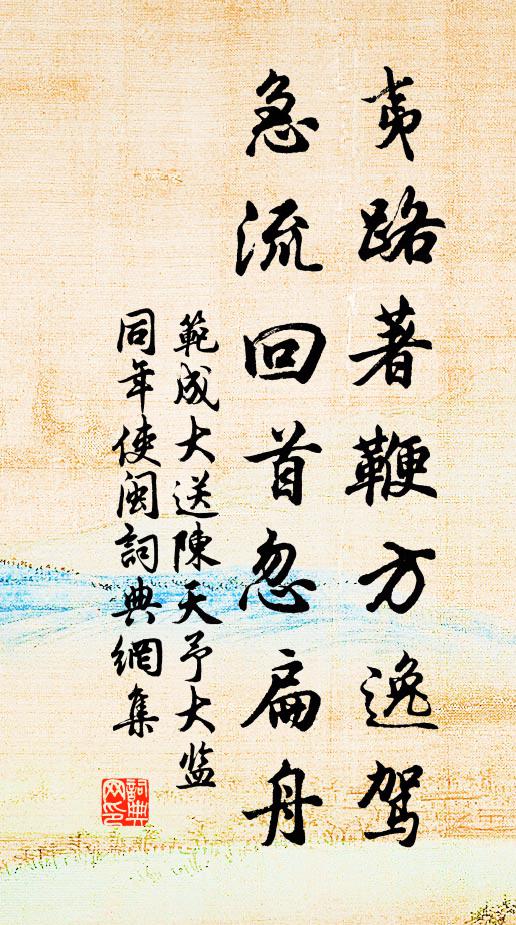 夷路著鞭方逸驾
急流回首忽扁舟
範成大送陳天予大监
同年使闽詞典網集
詞典网印